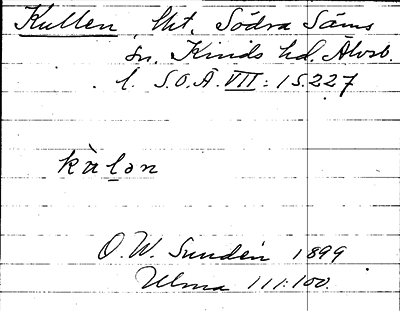 Kullen, lht, Södra Säms
sn. Kinds hd. Älvsb.
l. S.O.Ä. VII: 1 S.227
O.W. Sundén 1899
Ulma 111:100.